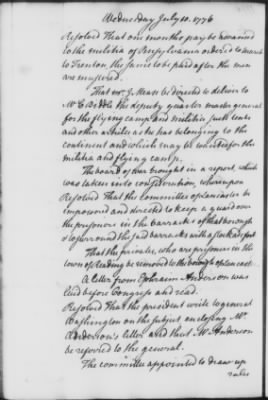 Wednesday July 10. 1776
Resolved That one months pay be advanced
to the militia of Pensylvania ordered to march
to Trenton, the same to be paid after the men
are mustered.
That Mr. J. Mease be directed to deliver to
Mr C Biddle the deputy quarter master general
for the flying camp and militia, such tents
and other articles as he has belonging to the
continent and which may be wanted for the
militia and flying camp.
The board of war brought in a report, which
was taken into consideration, whereupon
Resolved That the Committee of Lancaster be
impowered and directed to keep a guard over
the prisoners in the barracks of that borough
& to surround the said barracks with a stockade fort
That the privates, who are prisoners in the
town of Reading be removed to the borough of Lancaster.
A letter from Ephraim Anderson was
laid before Congress and read.
Resolved That the president write to general
Washington on the subject enclosing Mr
Anderson's letter and that Mr Anderson
be referred to the general.
The committee appointed to draw up
rules